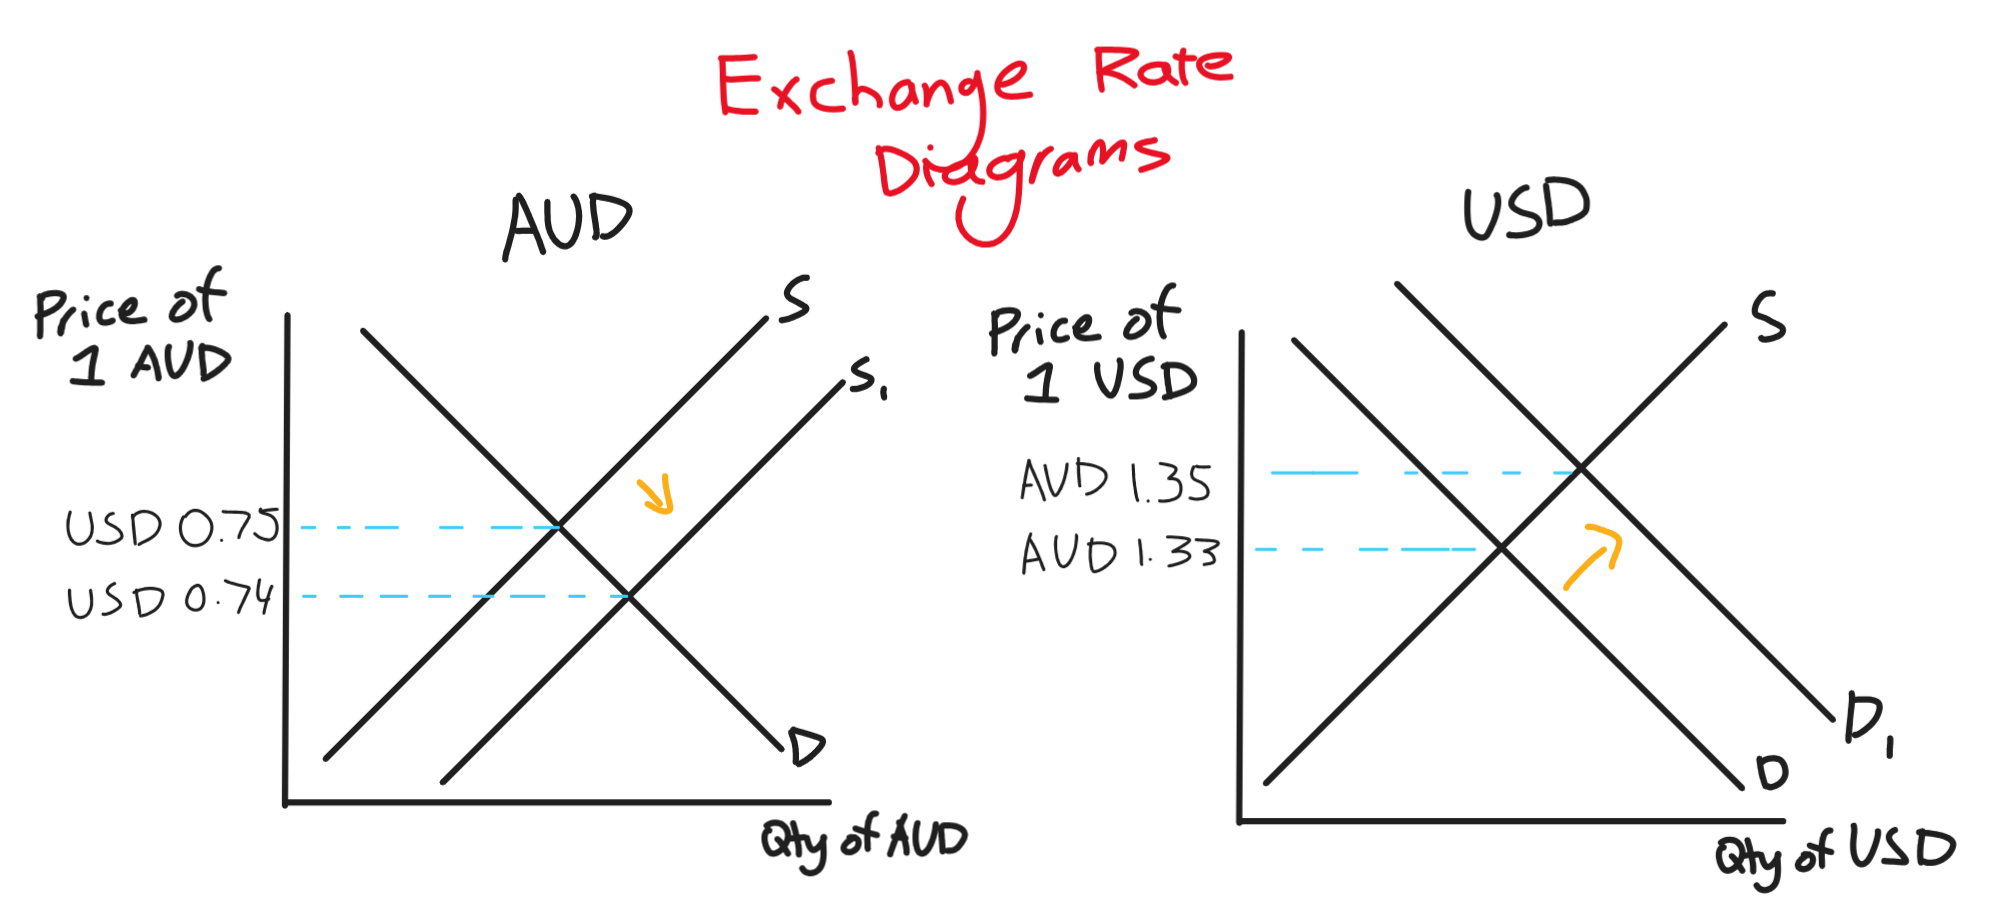 Exchange Rate
Diagrams
AUD
Price of
1 AUD
S
S1
USD 0.75
USD 0.74
D
Qty of AUD
USD
Price of
1 USD
S
AUD 1.35
AUD 1.33
D1
D
Qty of USD